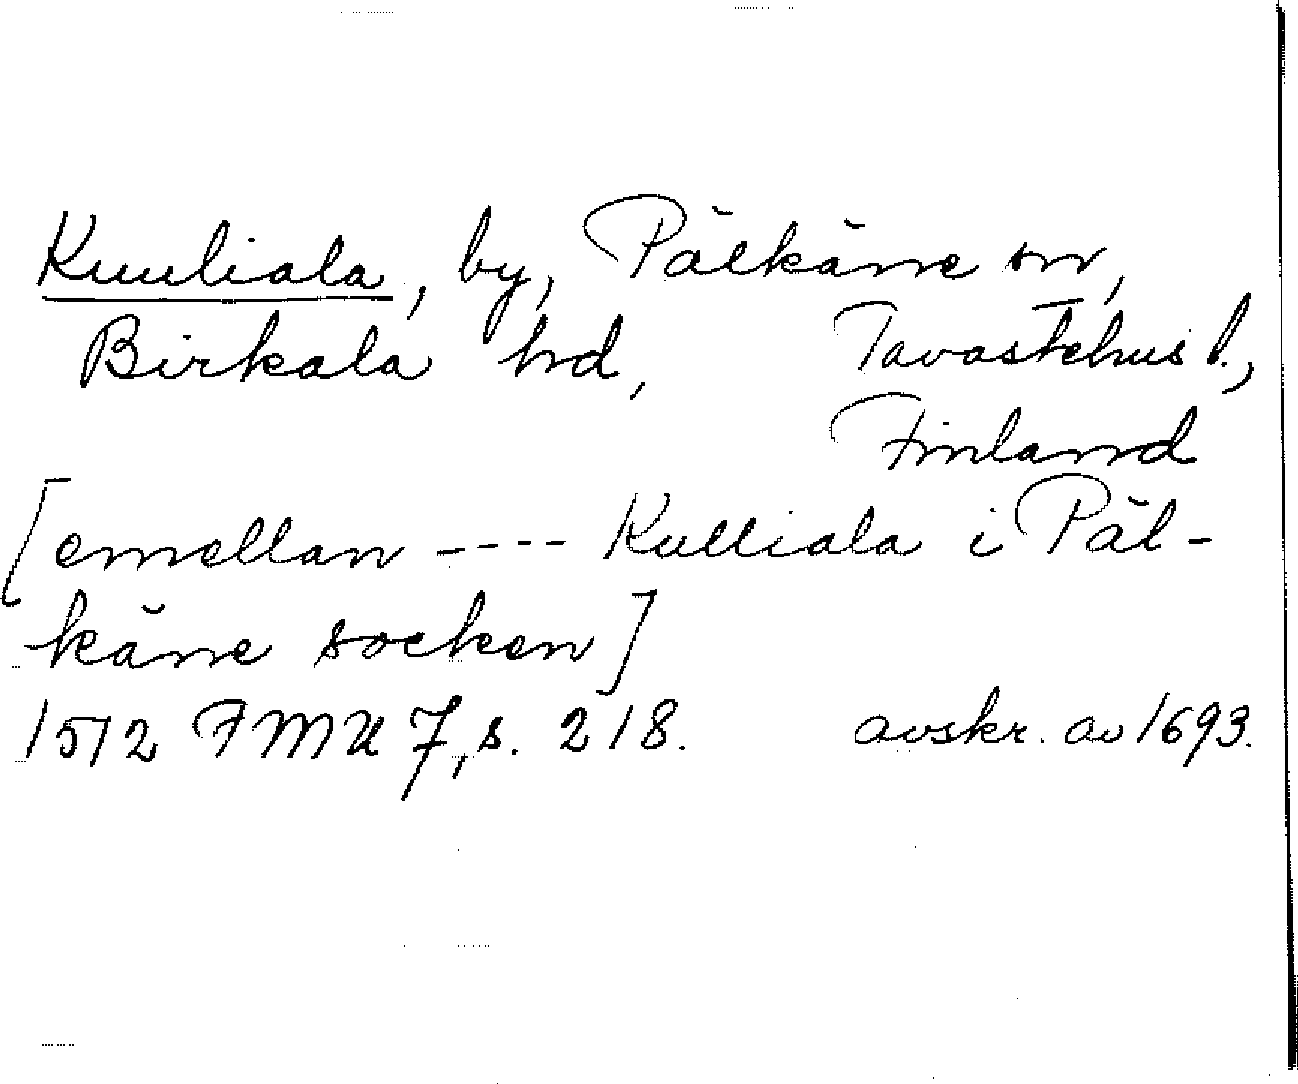 Kuuliala, by, Pälkäne sn,
Birkala hd, Tavastehus l.,
Finland
[emellan ---- Kulliala i Päl-
käne socken]
1512 FMU 7, s. 218. avskr. av 1693.